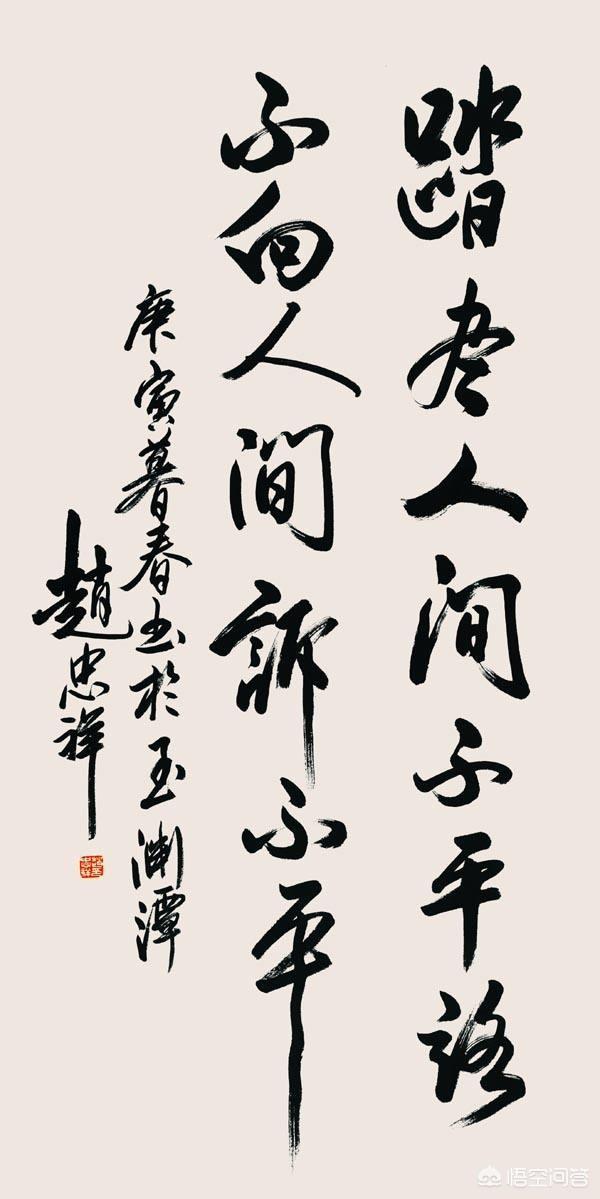 踏尽人间不平路
不向人间訴不平
庚寅暮春书於玉渊潭
趙忠祥
悟空问答